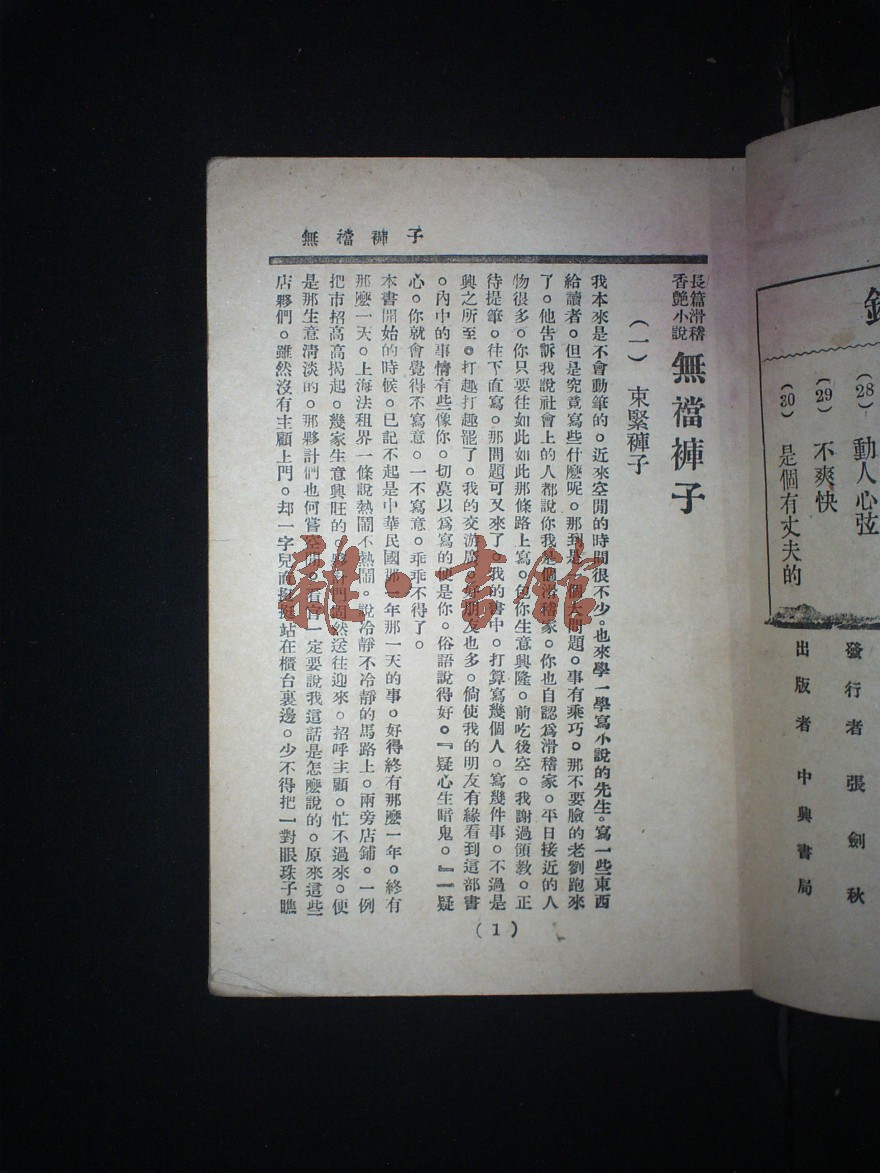 錄
(28) 動人心弦
(29) 不爽快
(30) 是個有丈夫的
發行者 張劍秋
出版者 中興書局
無襠褲子
長篇滑稽
香艷小說
無襠褲子
(一) 束緊褲子
我本來是不會動筆的。近來空閒的時間很不少。也來學一學寫小說的先生。寫一些東西
給讀者。但是究竟寫些什麼呢。那到是一個大問題。事有乘巧。那不要臉的老劉跑來
了。他告訴我說社會上的人都說你我是個滑稽家。你也自認爲滑稽家。平日接近的人
物很多。你只要往如此如此那條路上寫。包你生意興隆。前吃後空。我謝過領教。正
待提筆。往下直寫。那問題可又來了。我的書中。打算寫幾個人。寫幾件事。不過是
興之所至。打趣打趣罷了。我的交游廣。好朋友也多。倘使我的朋友有緣看到這部書
。內中的事情有些像你。切莫以爲寫的便是你。俗語說得好。『疑心生暗鬼。』一疑
心。你就會覺得不寫意。一不寫意。乖乖不得了。
本書開始的時候。已記不起是中華民國那一年那一天的事。好得終有那麼一年。終有
那麼一天。上海法租界一條說熱鬧不熱鬧。說冷靜不冷靜的馬路上。兩旁店鋪。一例
把市招高高揭起。幾家生意興旺的。夥計們固然送往迎來。招呼主顧。忙不過來。便
是那生意清淡的。那夥計們也何嘗空閒。看官一定要說我這話是怎麼說的。原來這些
店夥們。雖然沒有主顧上門。却一字兒而挺挺站在櫃台裏邊。少不得把一對眼珠子瞧
(1)
雜·書館